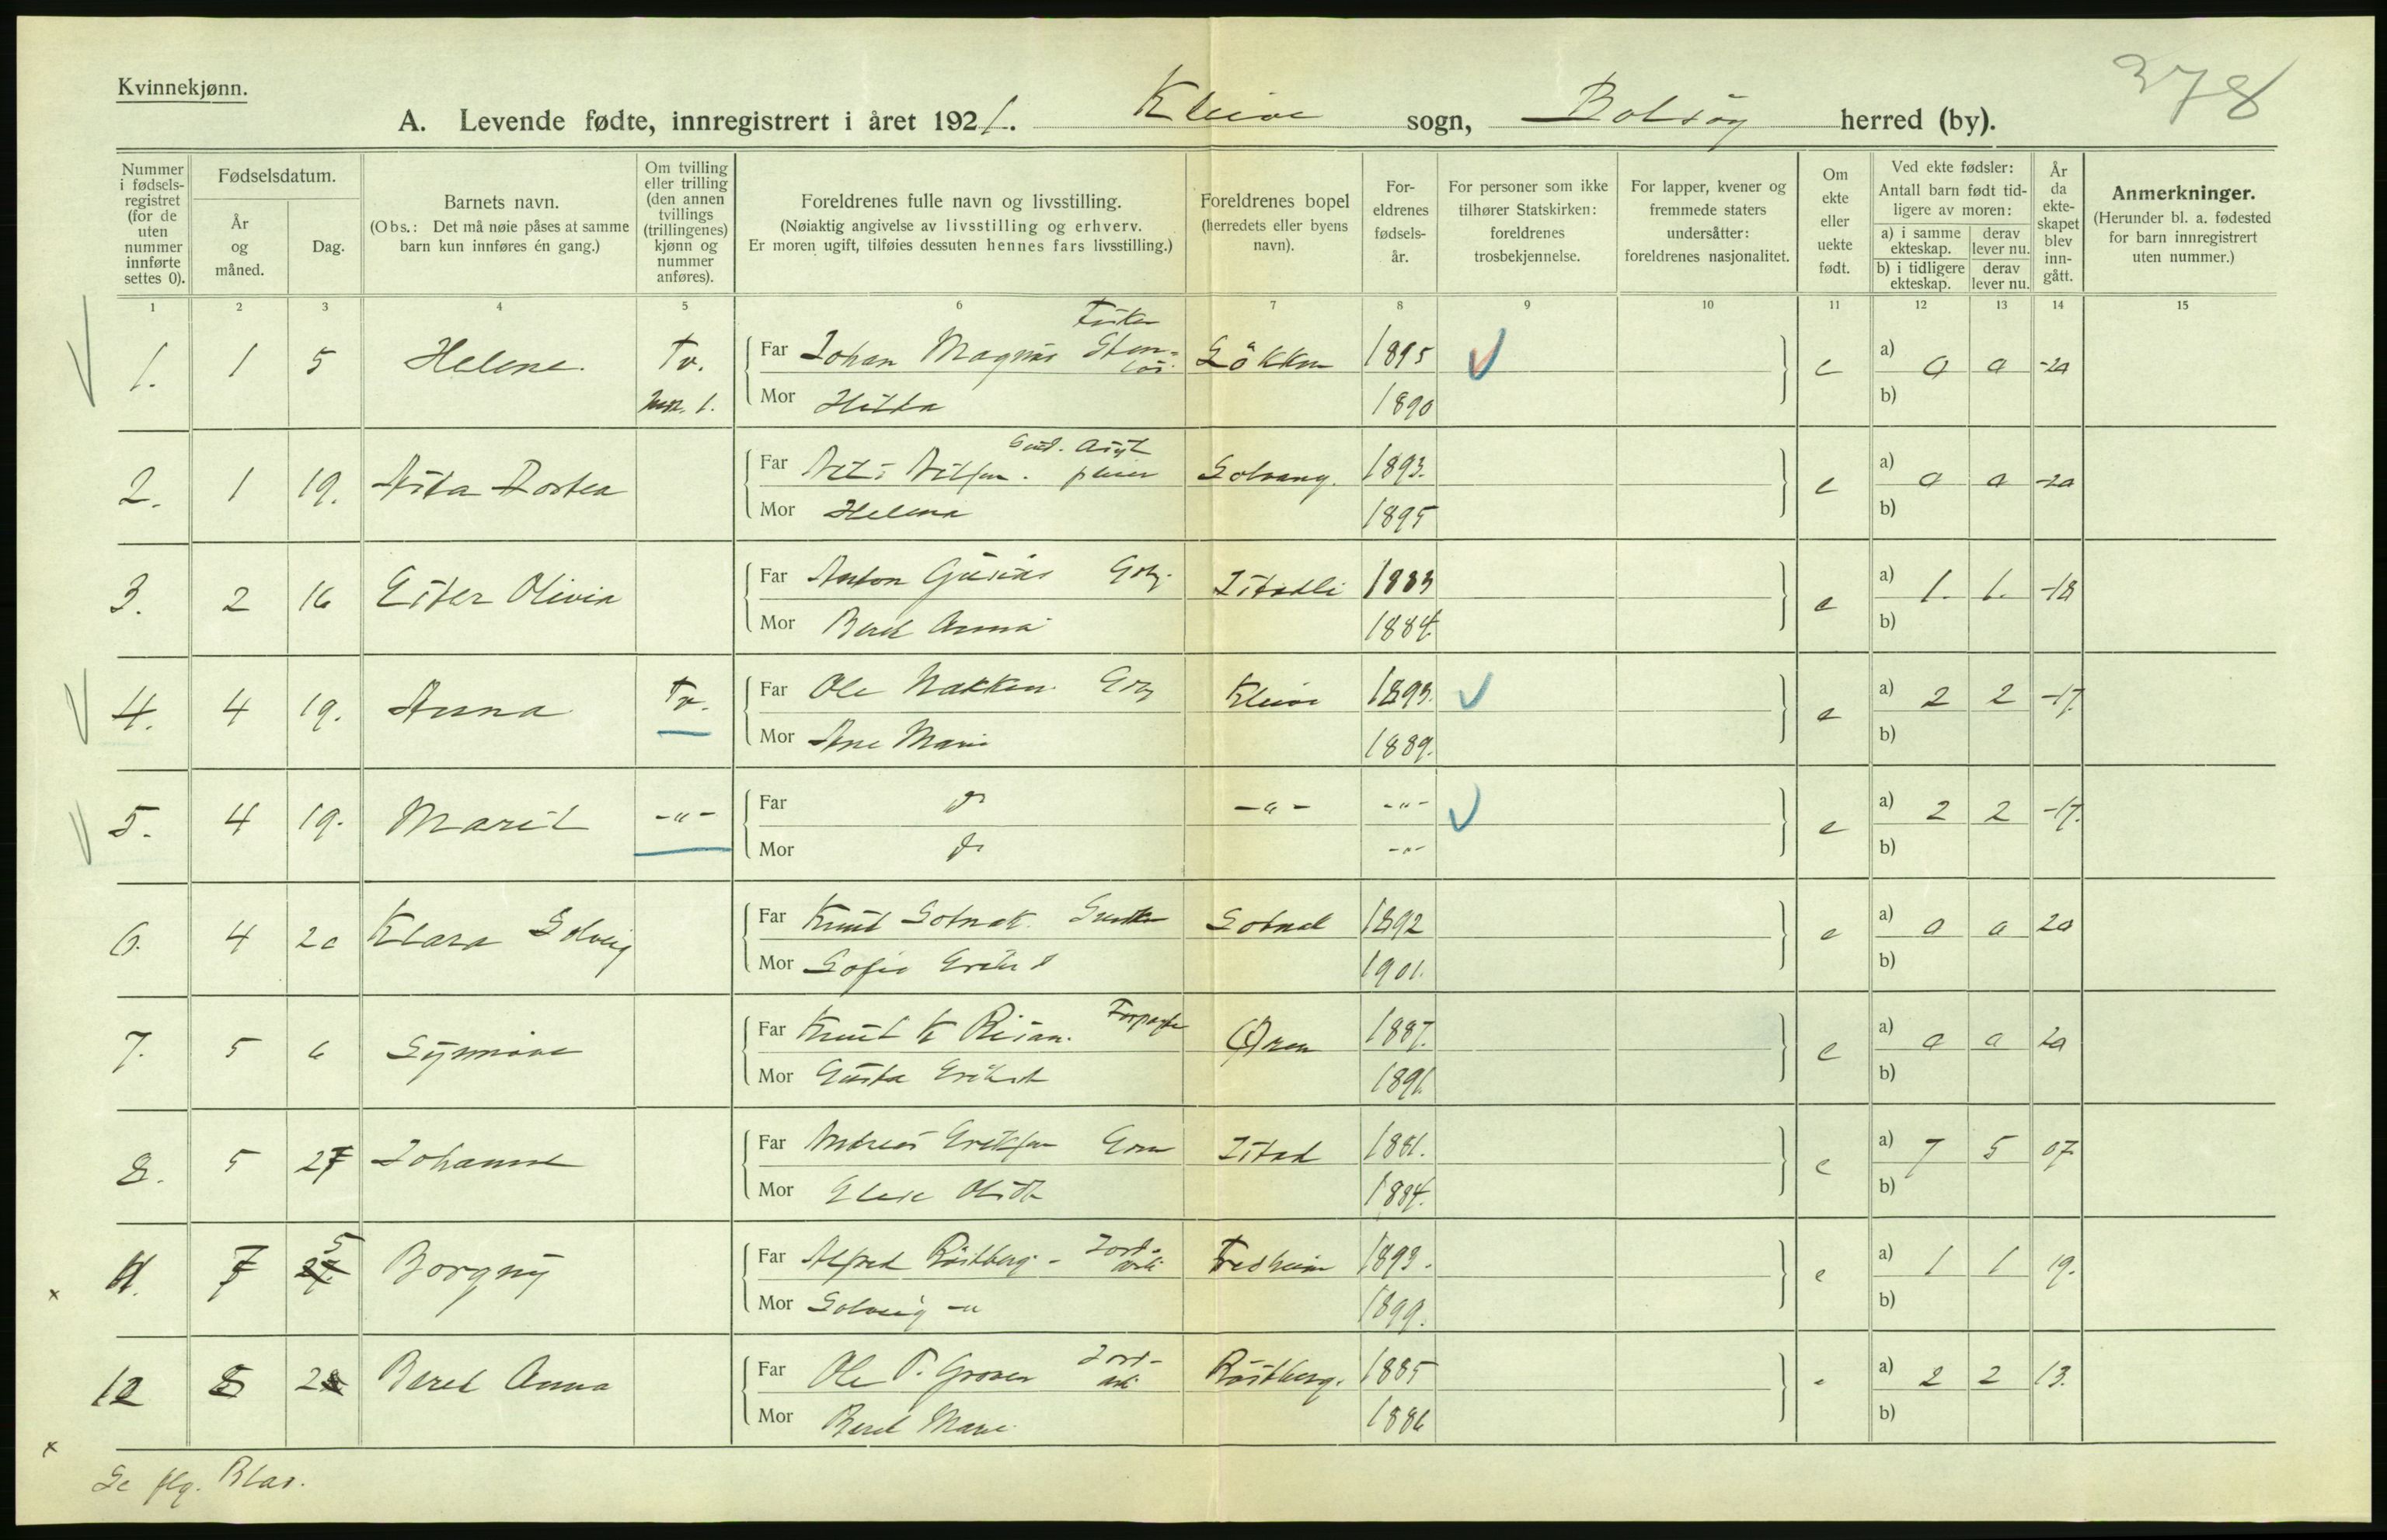 378
Kvinnekjønn.
A. Levende fødte, innregistrert i året 1921. Kleive sogn, Bolsøy herred (by).
Nummer i fødsels-registret (for de uten nummer innførte settes 0).
Fødselsdatum.
År og måned.
Dag.
Barnets navn.
(Obs.: Det må nøie påses at samme barn kun innføres én gang.)
Om tvilling eller trilling (den annen tvillings (trillingenes) kjønn og nummer anføres).
Foreldrenes fulle navn og livsstilling.
(Nøiaktig angivelse av livsstilling og erhverv.
Er moren ugift, tilføies dessuten hennes fars livsstilling.)
Foreldrenes bopel (herredets eller byens navn).
For-eldrenes fødsels-år.
For personer som ikke tilhører Statskirken: foreldrenes trosbekjennelse.
For lapper, kvener og fremmede staters undersåtter: foreldrenes nasjonalitet.
Om ekte eller uekte født.
Ved ekte fødsler:
Antall barn født tid-ligere av moren:
a) i samme ekteskap. derav lever nu.
b) i tidligere ekteskap. derav lever nu.
År da ekte-skapet blev inn-gått.
Anmerkninger.
(Herunder bl. a. fødested for barn innregistrert uten nummer.)
1 2 3 4 5 6 7 8 9 10 11 12 13 14 15
Fisker
1. 1 5 Helene. Tv. Far Johan Magnus 1895 e a) 0 0 -20
1. Mor 1890 b)
2. 1 19. Far Solvang. 1893. e a) 0 0 -20
Mor Helena 1895 b)
3. 2 16 Ester Olivia Far Anton 1883 e a) 1. 1. -18
Mor Beret Anna 1884. b)
4. 4 19. Anna Tv. Far Ole Nakken Kleive 1893. e a) 2 2 -17.
Mor Ane Marie 1889. b)
5. 4 19. Marit -"- Far do -"- -"- e a) 2 2 -17.
Mor do -"- b)
6. 4 20 Klara Solveig Far Knut 1892 e a) 0 0 20
Mor Sofie 1901. b)
7. 5 6 Synnøve Far Knut K Far 1887. e a) 0 0 20
Mor Gusta 1891. b)
8. 5 27 Johanne Far Andreas Istad 1881. e a) 7 5 07
Mor 1884. b)
11. 7 5 Borgny Far Alfred Røstberg - Jord- Fredheim 1893. e a) 1 1 19.
Mor Solveig -"- 1899. b)
12 8 Beret Anna Far Ole P. Jord- Røstberg. 1885 a) 2 2 13.
Mor Beret Marie 1886 b)
Se flg. Blad.